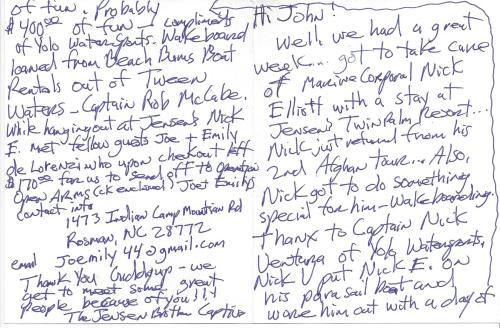 Hi John!
Well, we had a great
week... got to take care
of Marine Corporal Nick
Elliott with a stay at
Jensen's Twin Palm Resort...
Nick just returned from his
2nd Afghan Tour... Also,
Nick got to do something
special for him - Wakeboarding.
Thanx to Captain Nick
Ventura of Yolo Watersports,
Nick V put Nick E. on
his parasail boat and
wore him out with a day of
of fun. Probably
$400.00 of fun - compliments
of Yolo Watersports. Wakeboard
loaned from Beach Bums Boat
Rentals out of Tween
Waters - Captain Rob McCabe.
While hanging out at Jensen's Nick
E. met fellow guests Joe + Emily
de Lorenzi who upon checkout left
$170.00 for us to send off to Operation
Open ARMS (ck enclosed) Joe + Emily's
contact info
1473 Indian Camp Mountain Rd
Rosman, NC 28772
email Joemily44@gmail.com
Thank You Guldyup - we
get to meet some great
people because of you!!!
The Jensen Brother Captiva